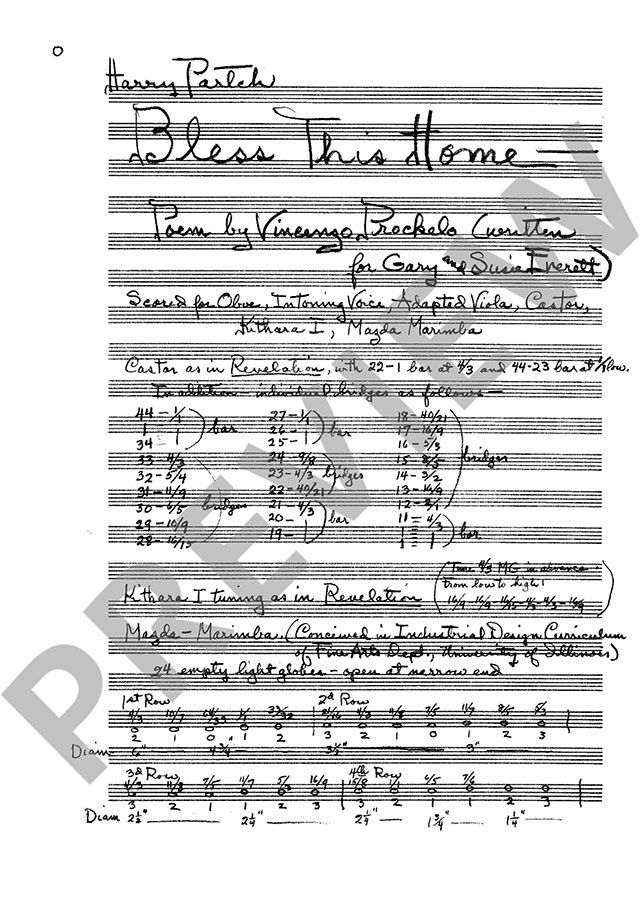 0
Harry Partch
Bless This Home—
Poem by Vincenzo Prockelo (written
for Gary and Susie Everett)
Scored for Oboe, Intoning Voice, Adapted Viola, Castor,
Kithara I, Mazda Marimba
Castor as in Revelation, with 22-1 bar at 4/3 and 44-23 bar at 1/1 low.
In addition individual bridges as follows—
44 – 1/1 27 – 1/1 18 – 40/21
1 – 1 ) bar 26 – 1 ) bar 17 – 16/9
34 1 25 – 1 16 – 5/3
33 – 4/3 24 9/8 15 – 8/5 bridges
32 – 5/4 23 – 4/3 bridges 14 – 3/2
31 – 11/9 22 – 40/21 13 – 16/9
30 – 6/5 bridges 21 – 4/3 12 – 2/1
29 – 10/9 20 – 1 ) bar 11 = 4/3
28 – 16/15 19 – 1 1 = 1 ) bar
(Tune 4/3 MG in advance
from low to high:
Kithara I tuning as in Revelation
Mazda – Marimba. (Conceived in Industrial Design Curriculum
of Fine Arts Dept., University of Illinois)
24 empty light globes – open at narrow end
1st Row 2d Row
4/3 10/7 1/1 4/3 11/8 7/5 11/7 8/5 5/3
2 1 0 1 2 3 2 1 0 1 2 3
Diam 6" 4 3/4" 3 1/2" 3"
3d Row 4th Row
4/3 11/8 7/5 11/7 5/3 16/9 15/8 1/1 6/5 7/6
3 2 1 1 2 3 3 2 1 1 2 3
Diam 2 1/2" 2 1/4" 2 1/4" 1 3/4" 1 1/4"
PREVIEW